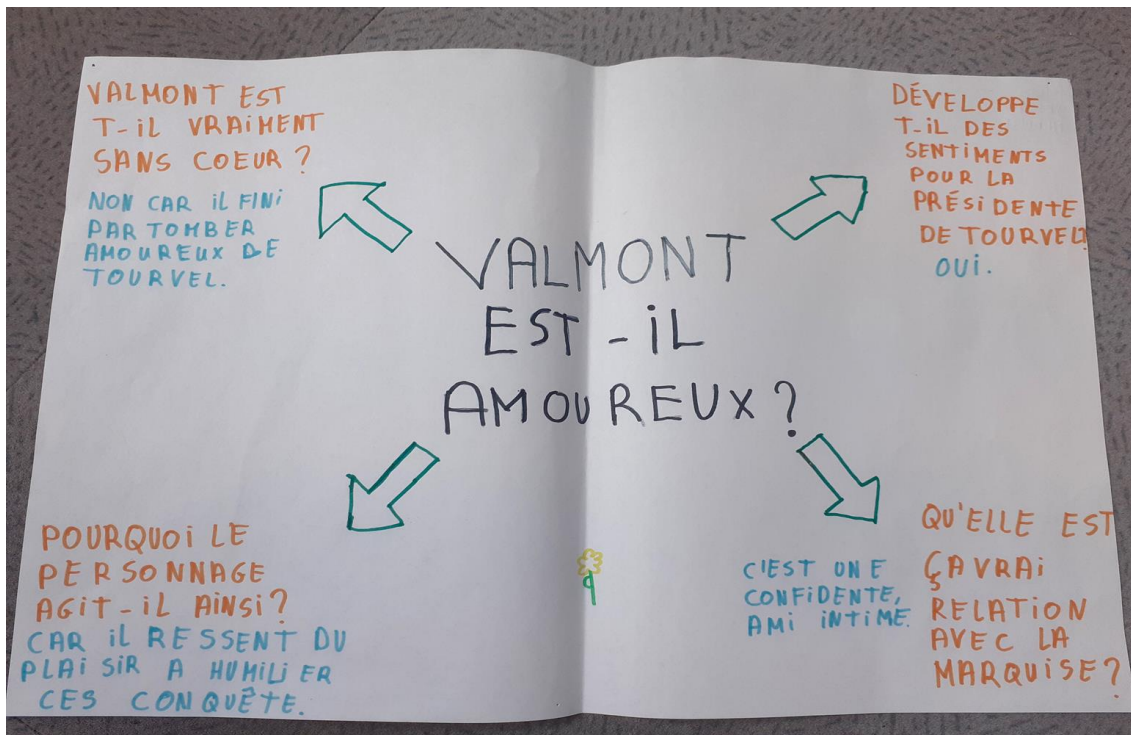 VALMONT EST
T-iL VRAiMENT
SANS COEUR ?
NON CAR iL FiNi
PAR TOMBER
AMOUREUX DE
TOURVEL.
DÉVELOPPE
T-iL DES
SENTiMENTS
POUR LA
PRÉSiDENTE
DE TOURVEL?
OUi.
VALMONT
EST-iL
AMOUREUX ?
POURQUOi LE
PERSONNAGE
AGiT-iL AiNSi?
CAR iL RESSENT DU
PLAiSiR A HUMiLiER
CES CONQUÊTE.
C'EST UNE
CONFiDENTE,
AMi iNTiME.
QU'ELLE EST
ÇA VRAi
RELATiON
AVEC LA
MARQUiSE?